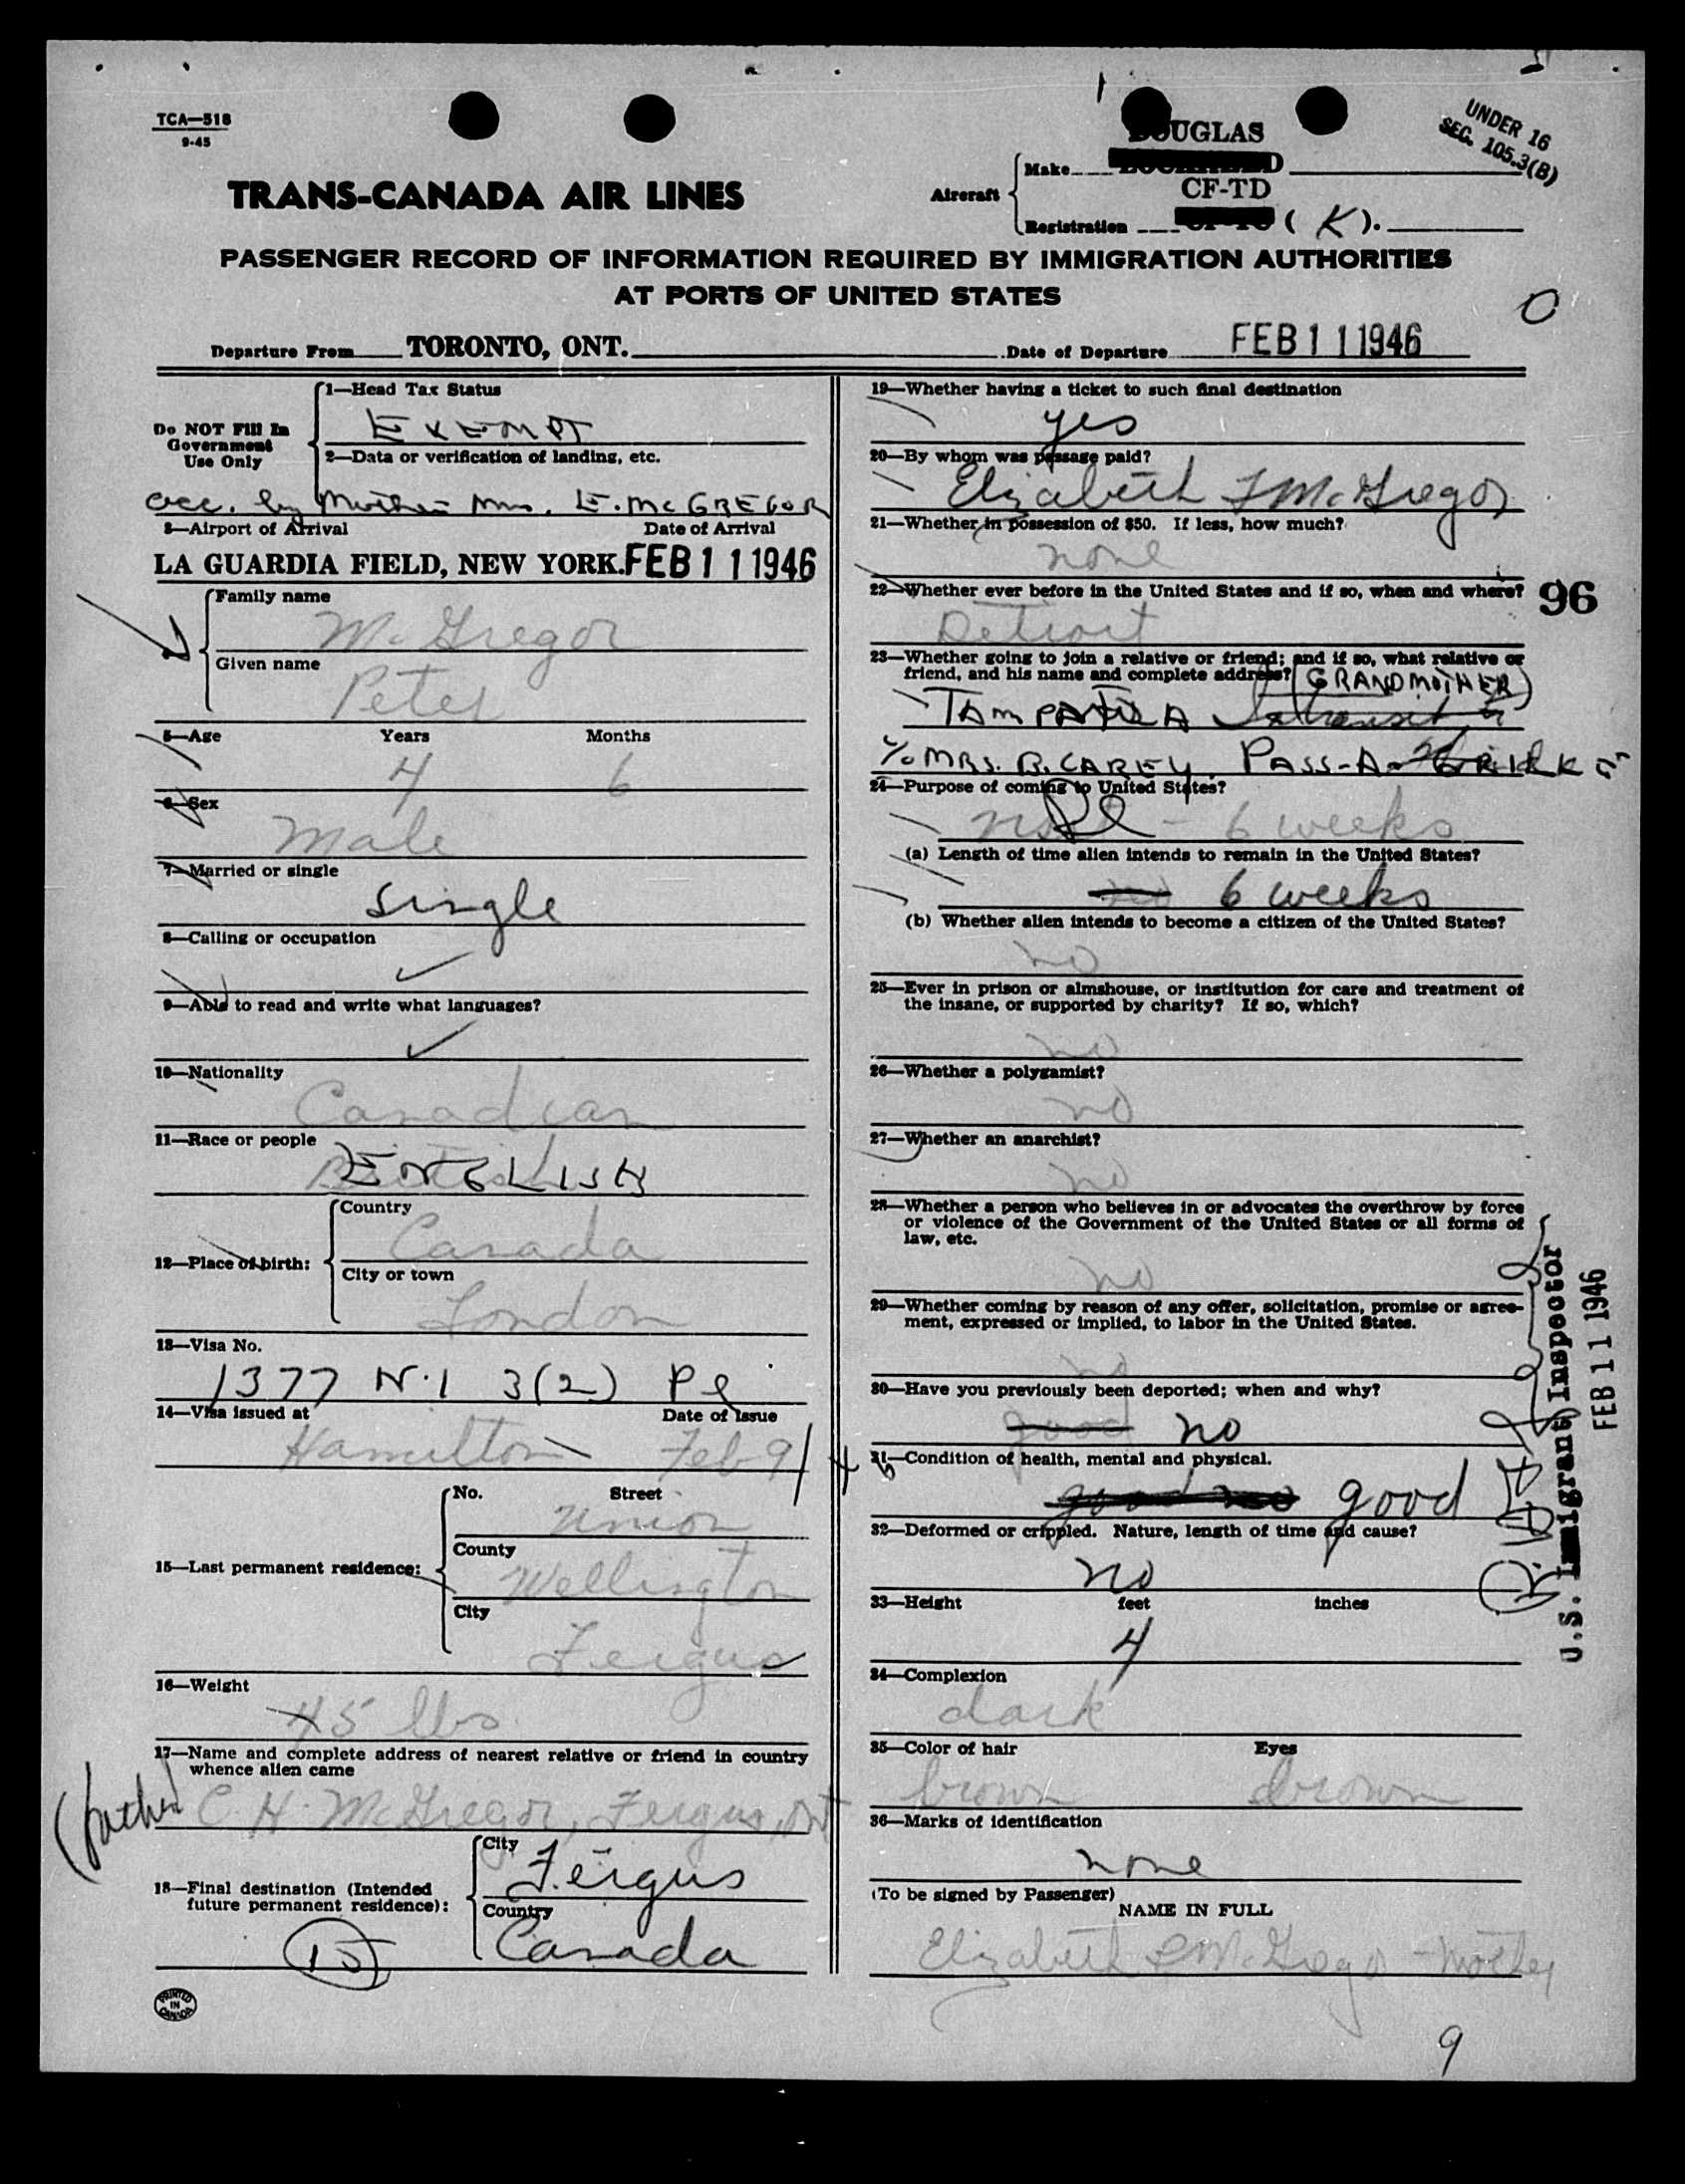 TCA—518
9-45
UNDER 16
SEC. 105.3(B)
DOUGLAS
TRANS-CANADA AIR LINES
Aircraft
Make
CF-TD
Registration (K).
PASSENGER RECORD OF INFORMATION REQUIRED BY IMMIGRATION AUTHORITIES
AT PORTS OF UNITED STATES
O
Departure From TORONTO, ONT. Date of Departure FEB 11 1946
Do NOT Fill In
Government
Use Only
1—Head Tax Status
EXEMPT
2—Data or verification of landing, etc.
acc. by Mother Mrs. E. McGREGOR
3—Airport of Arrival Date of Arrival
LA GUARDIA FIELD, NEW YORK. FEB 11 1946
Family name
McGregor
Given name
Peter
5—Age Years Months
4 6
6—Sex
Male
7—Married or single
Single
8—Calling or occupation
✓
9—Able to read and write what languages?
✓
10—Nationality
Canadian
11—Race or people
ENGLISH
12—Place of birth:
Country
Canada
City or town
London
13—Visa No.
1377 N.I 3(2) Pl
14—Visa issued at Date of Issue
Hamilton Feb 9/46
15—Last permanent residence:
No. Street
Union
County
Wellington
City
Fergus
16—Weight
45 lbs.
17—Name and complete address of nearest relative or friend in country
whence alien came
(father) C. H. McGregor, Fergus, Ont
18—Final destination (Intended
future permanent residence):
City
Fergus
Country
Canada
15
PRINTED
IN
CANADA
19—Whether having a ticket to such final destination
yes
20—By whom was passage paid?
Elizabeth L McGregor
21—Whether in possession of $50. If less, how much?
none
22—Whether ever before in the United States and if so, when and where?
96
Detroit
23—Whether going to join a relative or friend; and if so, what relative or
friend, and his name and complete address? (GRANDMOTHER)
TAMPA FLA
c/o MRS. B. CAREY. PASS-A-GRILLE
24—Purpose of coming to United States?
Pl - 6 weeks
(a) Length of time alien intends to remain in the United States?
no 6 weeks
(b) Whether alien intends to become a citizen of the United States?
no
25—Ever in prison or almshouse, or institution for care and treatment of
the insane, or supported by charity? If so, which?
no
26—Whether a polygamist?
no
27—Whether an anarchist?
no
28—Whether a person who believes in or advocates the overthrow by force
or violence of the Government of the United States or all forms of
law, etc.
no
29—Whether coming by reason of any offer, solicitation, promise or agree-
ment, expressed or implied, to labor in the United States.
no
30—Have you previously been deported; when and why?
good no
31—Condition of health, mental and physical.
good no good
32—Deformed or crippled. Nature, length of time and cause?
no
33—Height feet inches
4
34—Complexion
dark
35—Color of hair Eyes
brown brown
36—Marks of identification
none
(To be signed by Passenger)
NAME IN FULL
Elizabeth L McGregor - Mother
9
U.S. Immigrant Inspector
FEB 11 1946